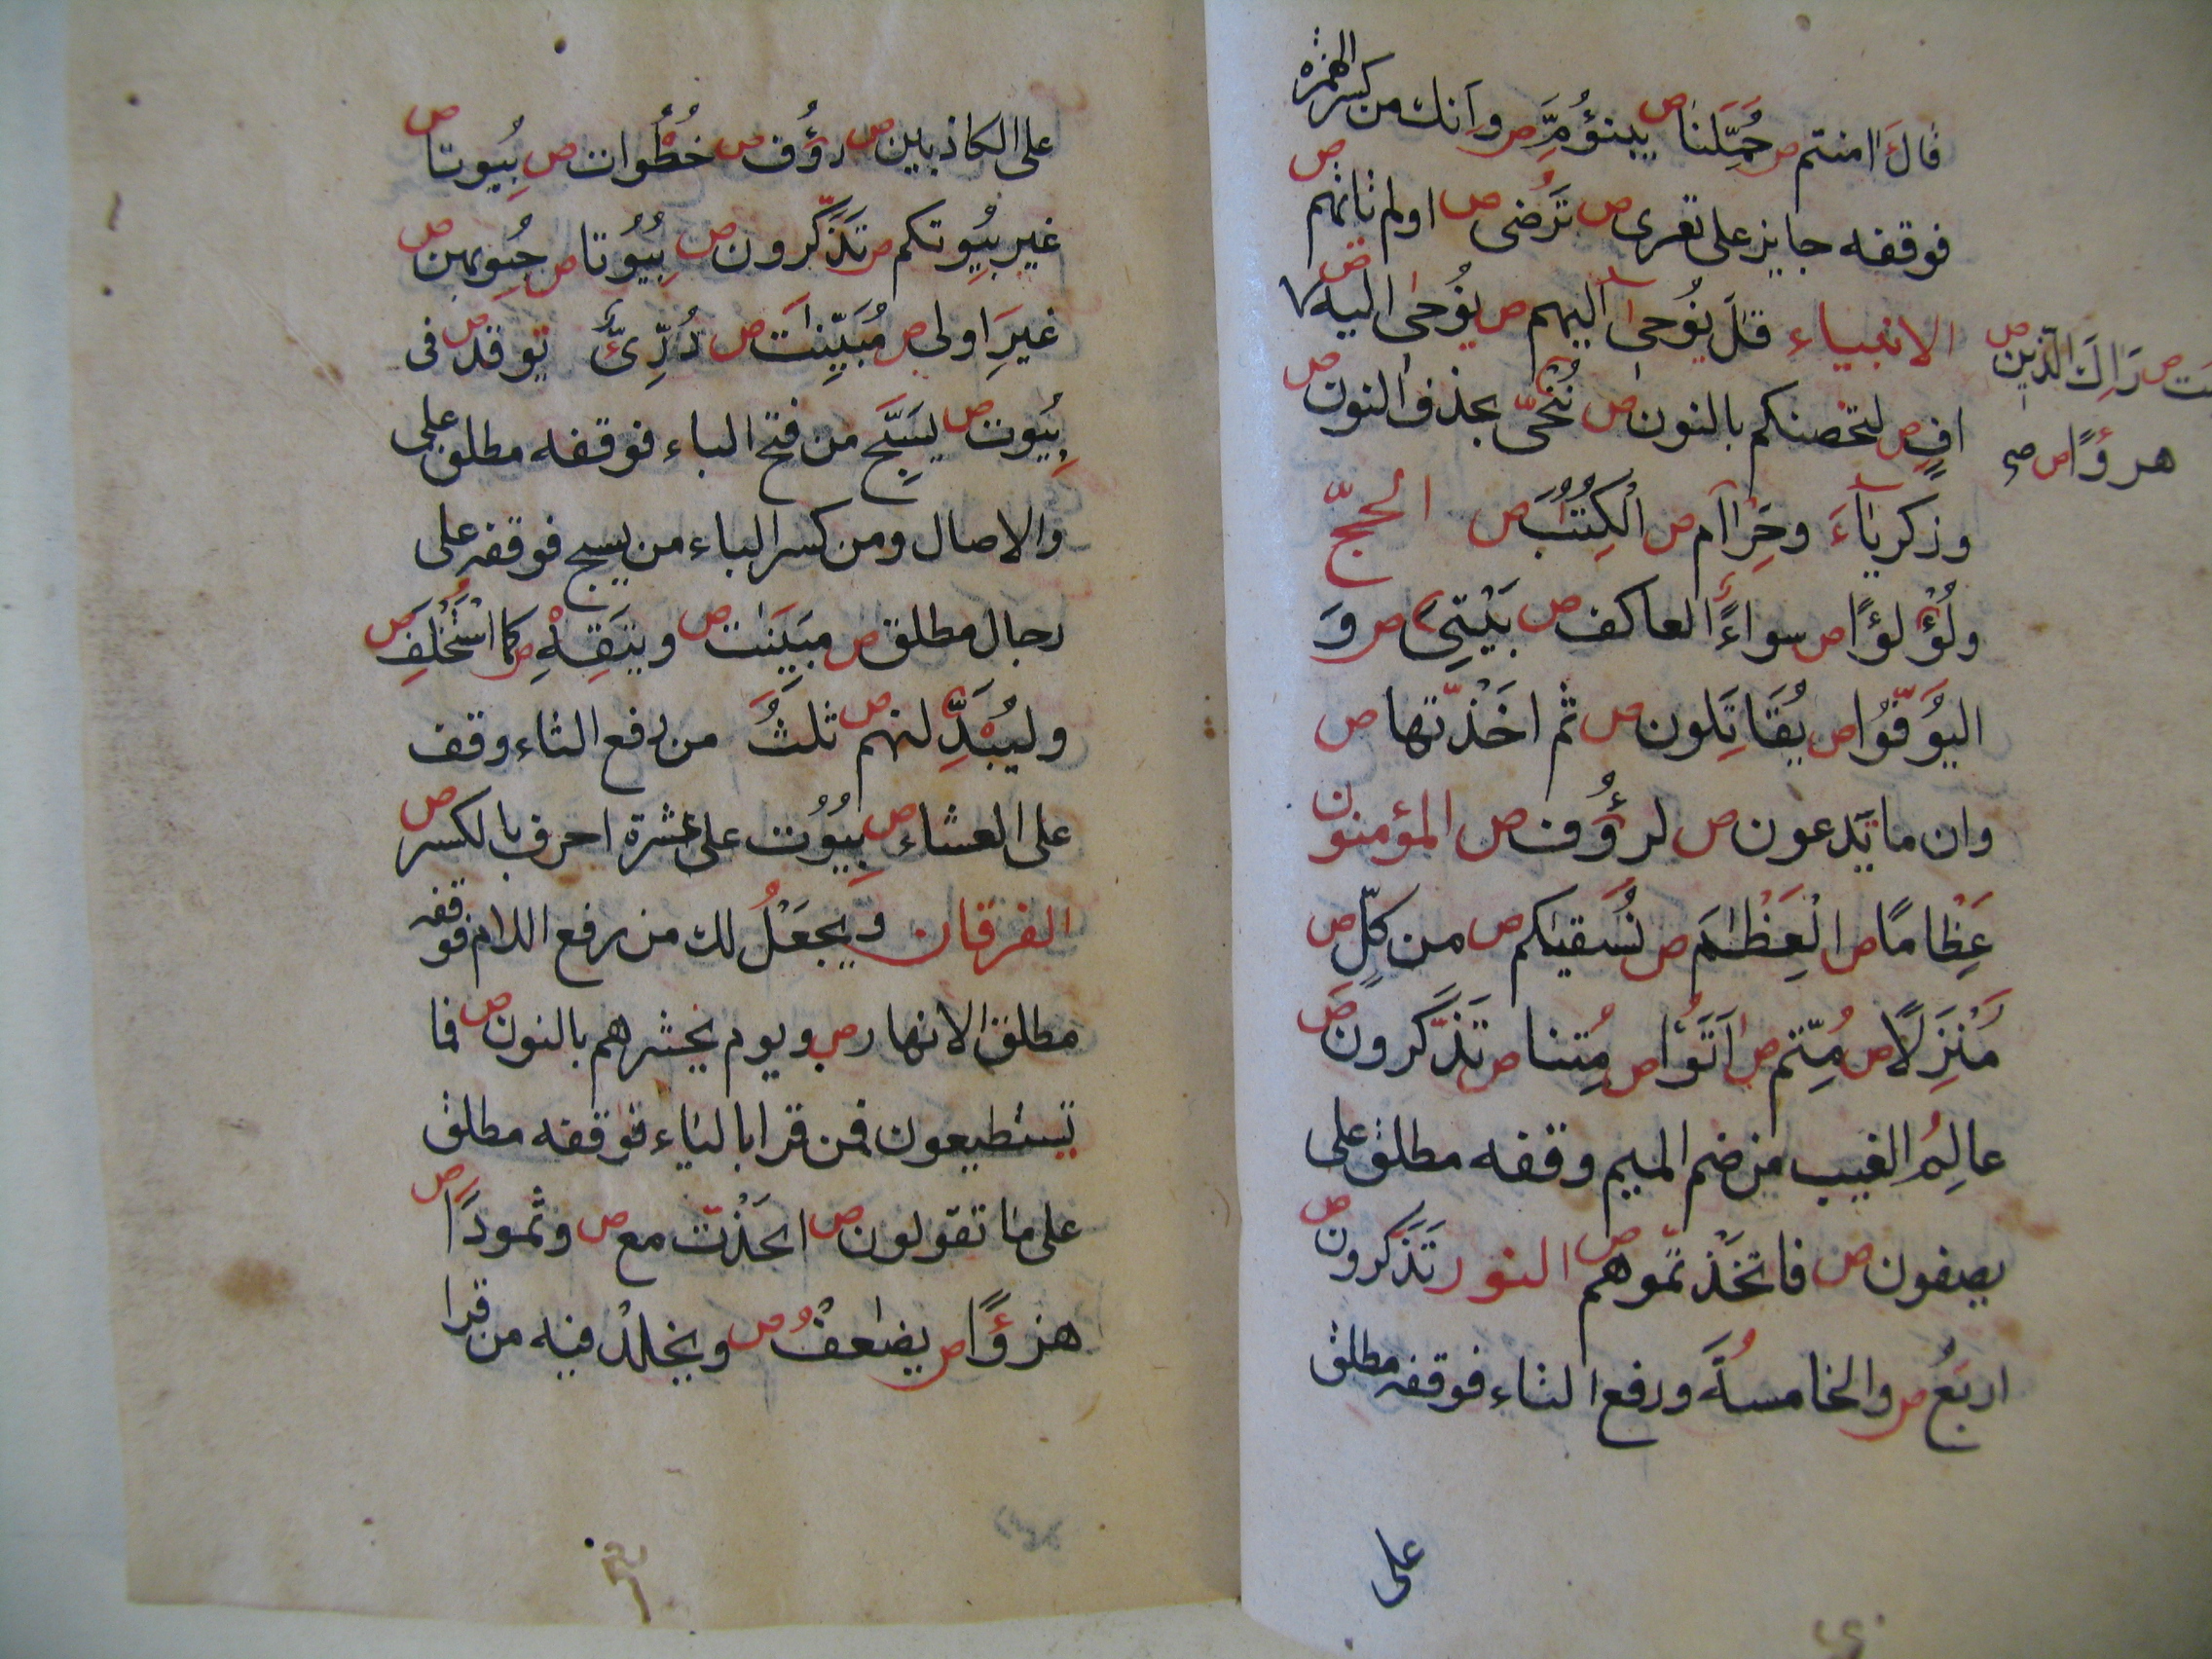 قال ءامنتم ص حُمِّلنا ص يبنؤُمِّ ص وانك من كسر الهمزة
فوقفه جايز على تعرى ص تُرضى ص اولم تاتهم ص
الانبياء قل يُوحى اليهم ص يُوحى اليه ص
افٍ ص لتحصنكم بالنون ص نُجّى بحذف النون ص
وزكرياءَ وحرام ص الكتب ص الحجّ
ولؤلؤًا ص سواءً العاكف ص بيتى ص وَ
ليُوَفّوا ص يُقاتِلون ص ثم اخذتها ص
وان ما يدعون ص لرؤُف ص المؤمنون
عِظامًا ص العِظمَ ص نُسقيكم ص من كلِّ ص
مَنزِلًا ص مِتّم ص اتَوا ص مِتنا ص تذّكرون ص
عالمُ الغيب من ضم الميم وقفه مطلق على
يصفون ص فاتخذتموهم ص النور تَذّكرون ص
اربعُ ص والخامسةَ ورفع التاء فوقفه مطلق
على
راك الذين ص
هزؤًا ص
على الكاذبين ص رؤُف ص خُطُوات ص بِيُوتا ص
غير بيُوتكم ص تذّكرون ص بيُوتا ص جُيوبهن ص
غيرِ اولى ص مُبيّنت ص دُرِّىٌّ توقد ص فى
بِيُوت ص يسبّح من فتح الباء فوقفه مطلق على
والاصال ومن كسر الباء من يسبح فوقفه على
رجال مطلق ص مبيّنت ص ويتقه ص كما استخلف ص
وليُبدِّلنهم ص ثلثُ من رفع الثاء وقف
على العشاء ص بِيُوت على عشرة احرف بالكسر ص
الفرقان ويجعلُ لك من رفع اللام فوقفه
مطلق الانهار ص ويوم يحشرهم بالنون ص فما
تستطيعون فمن قرا بالياء فوقفه مطلق
على ما تقولون ص اتخذت مع ص وثمودًا ص
هزؤًا ص يضعفُ ص ويخلدُ فيه من قرا